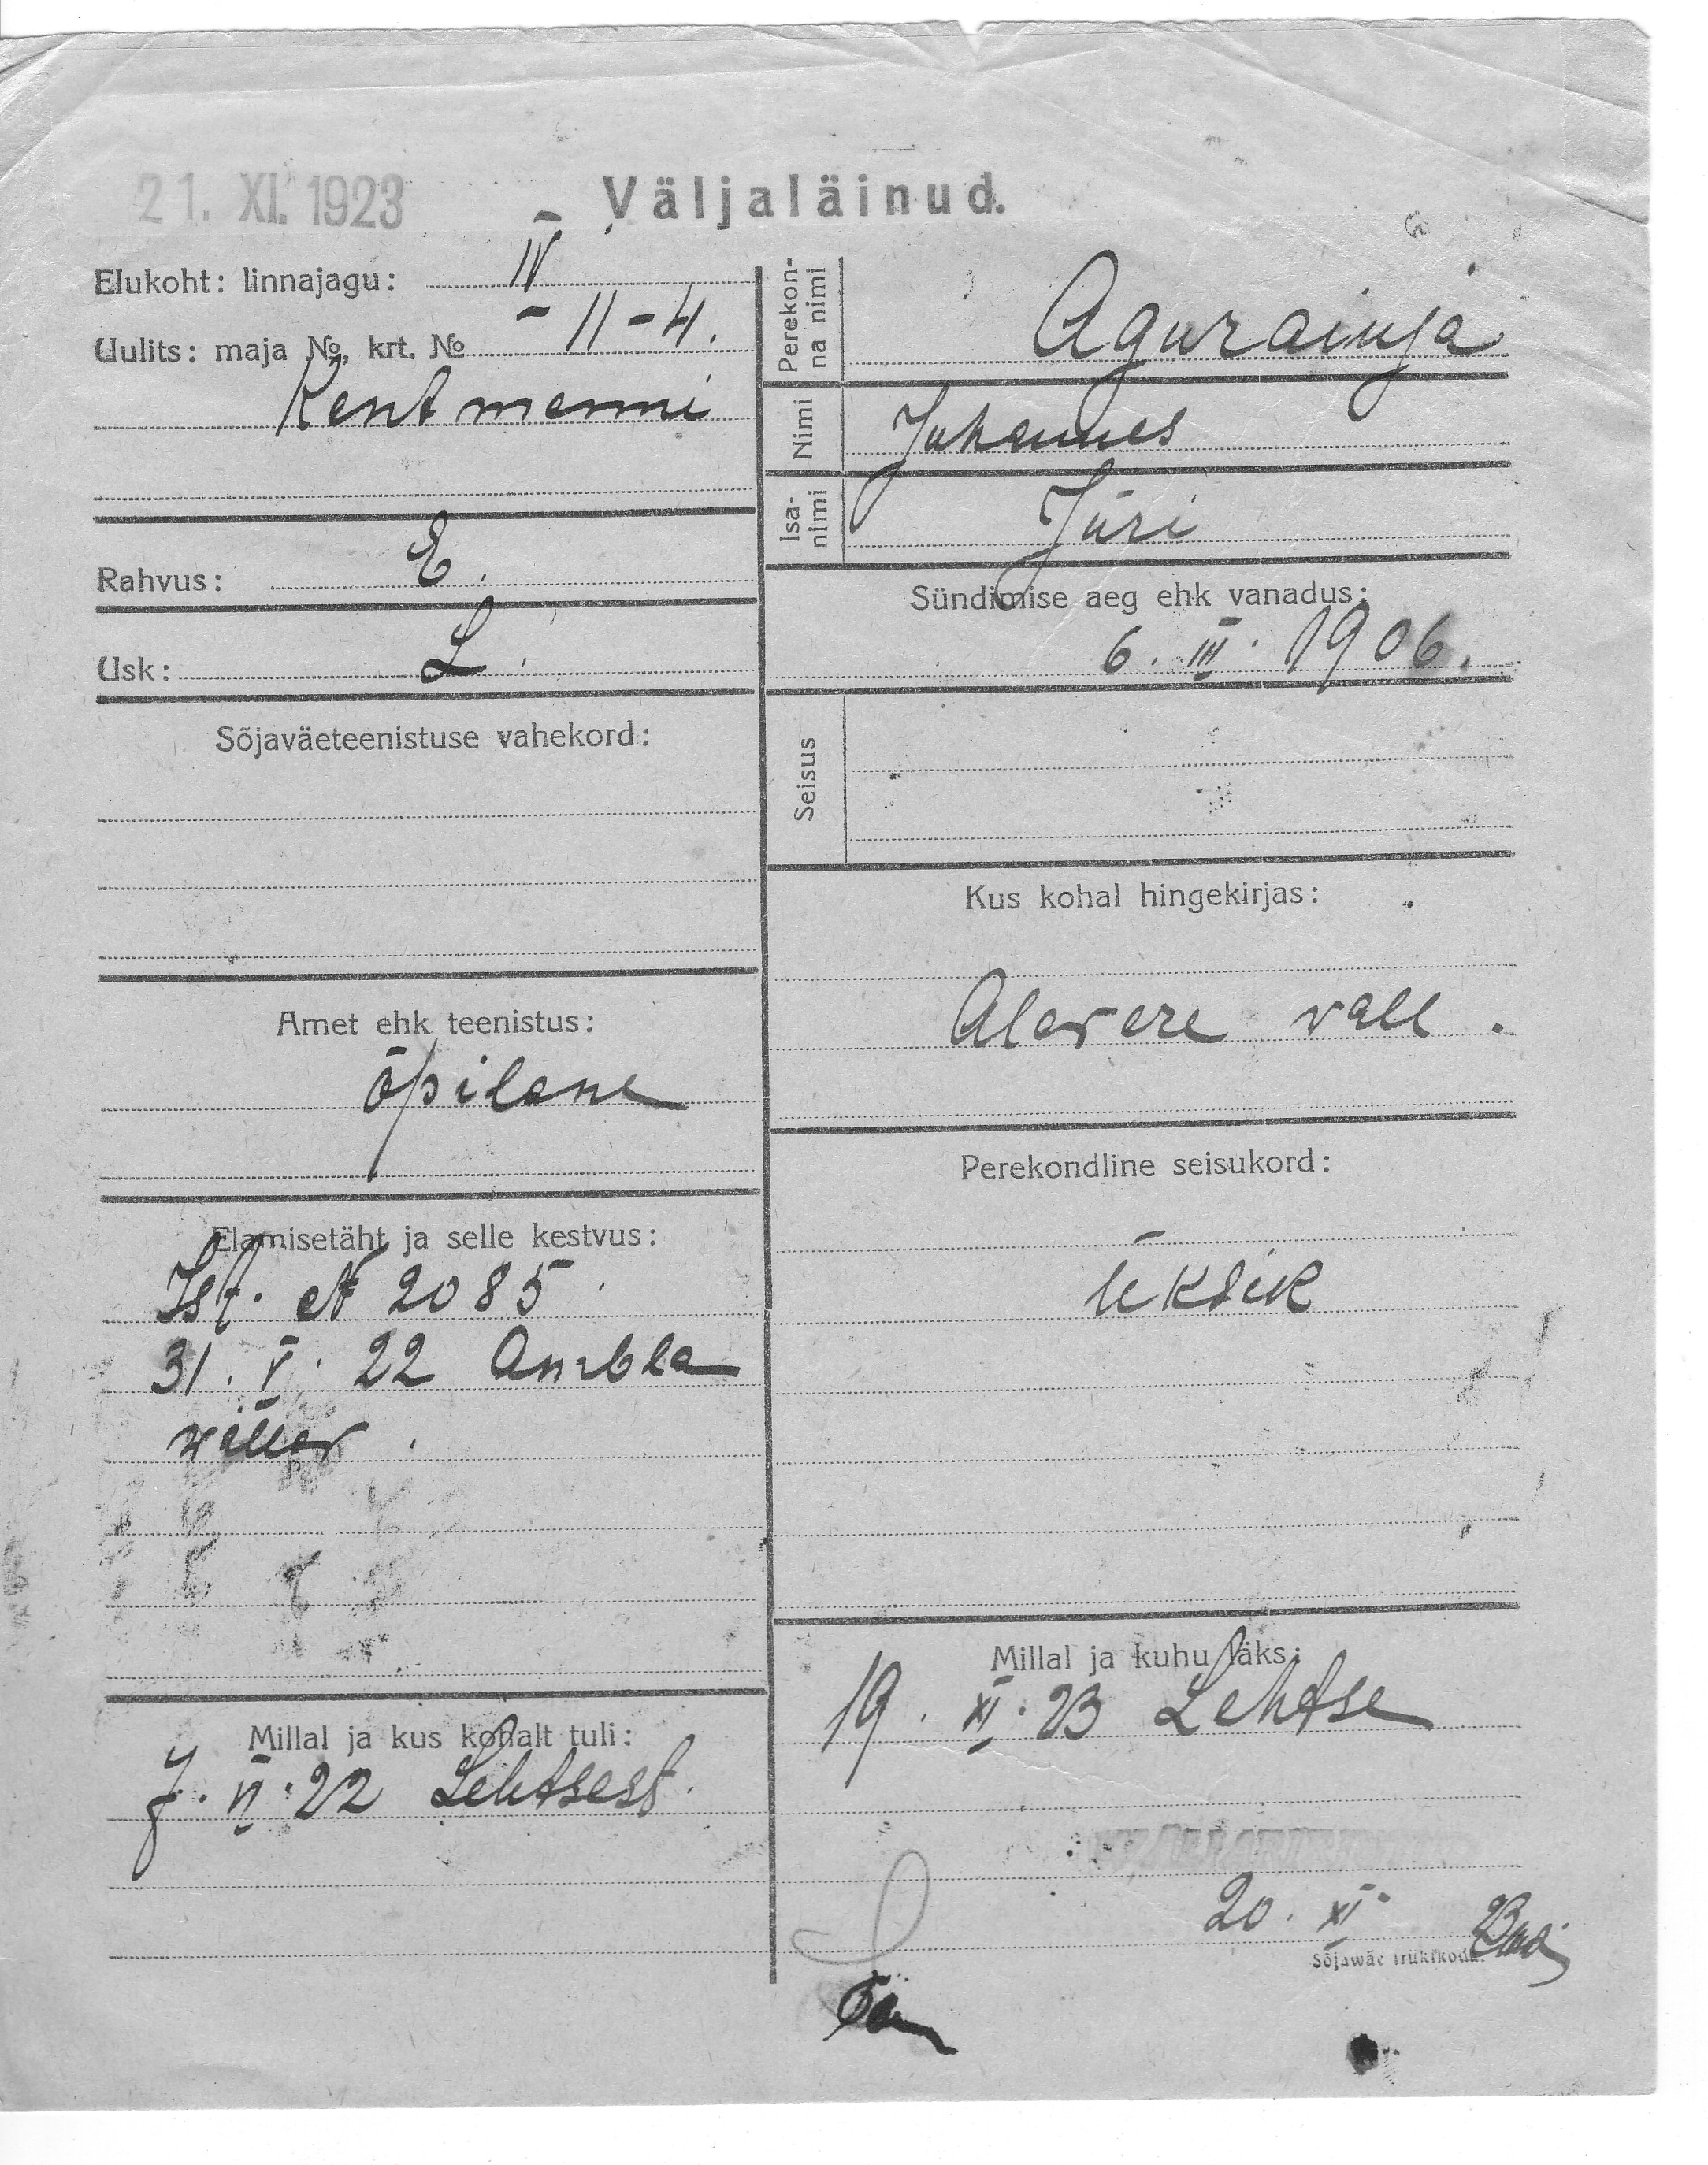 21. XI. 1923
Väljaläinud.
Elukoht: linnajagu: IV
Uulits: maja №, krt. № - 11 - 4.
Kentmanni
Rahvus: E.
Usk: L.
Sõjaväeteenistuse vahekord:
Amet ehk teenistus:
õpilane
Elamisetäht ja selle kestvus:
Ist. № 2085
31. V. 22 Ambla
wallav.
Millal ja kus kohalt tuli:
7. VI. 22 Lehtsest.
Perekon-
na nimi
Aguraiuja
Nimi Juhannes
Isa-
nimi
Jüri
Sündimise aeg ehk vanadus:
6. III. 1906.
Seisus
Kus kohal hingekirjas:
Alavere vall.
Perekondline seisukord:
üksik
Millal ja kuhu läks:
19. XI. 23 Lehtse
20. XI
Sõjawäe trükikoda.